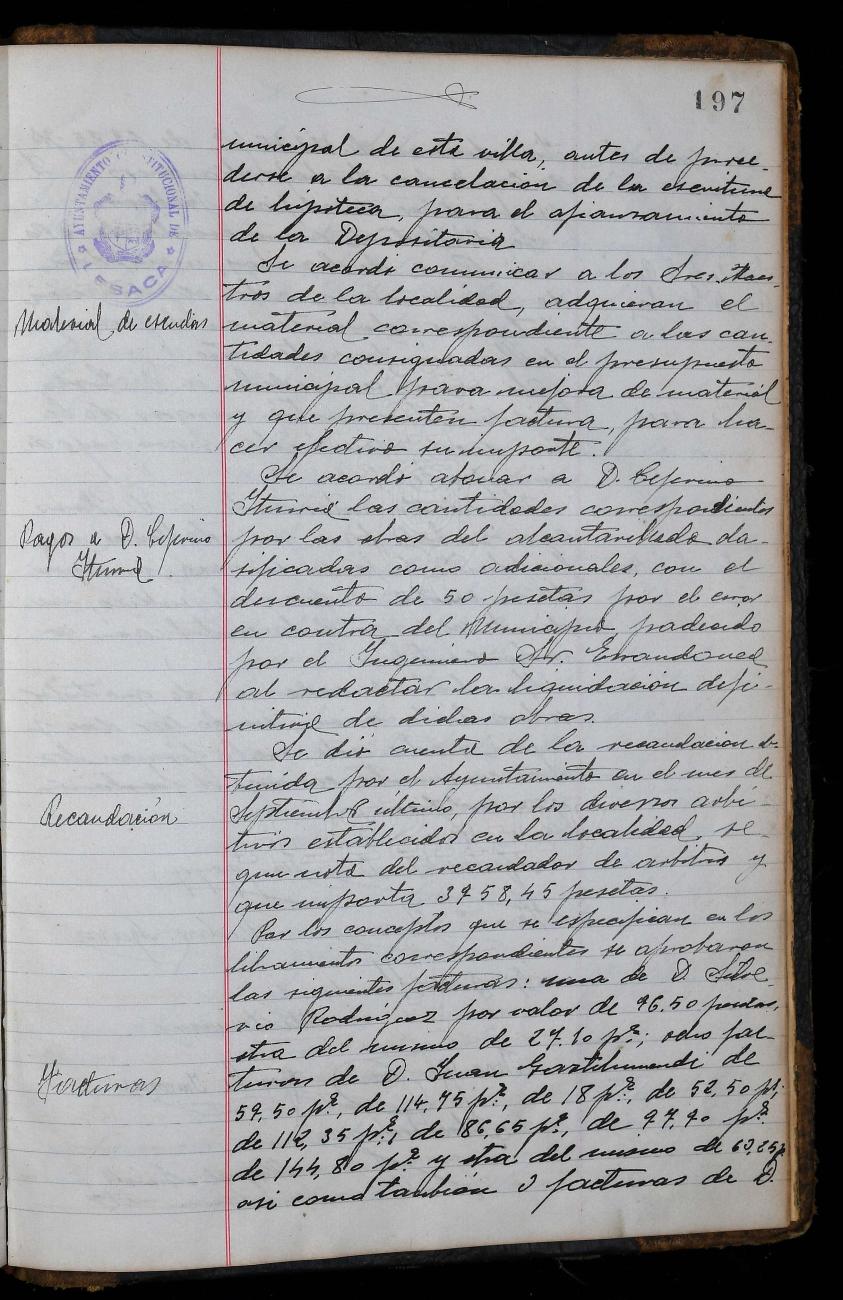 197
municipal de esta villa, antes de proce-
derse a la cancelación de la escritura
de hipoteca, para el afianzamiento
de la Depositaria
AYUNTAMIENTO CONSTITUCIONAL DE
LESACA
Se acordó comunicar a los Sres. Maes-
tros de la localidad, adquieran el
Material de escuelas
material correspondiente a las can-
tidades consignadas en el presupuesto
municipal para mejora de material
y que presenten factura, para ha-
cer efectivo su importe.
Se acordó abonar a D. Ceferino
Iturria las cantidades correspondientes
Pagos a D. Ceferino
Iturria
por las obras del alcantarillado cla-
sificadas como adicionales, con el
descuento de 50 pesetas por el error
en contra del Municipio padecido
por el Ingeniero Sr. Errandonea
al redactar la liquidación defi-
nitiva de dichas obras.
Se dió cuenta de la recaudación ob-
tenida por el Ayuntamiento en el mes de
Recaudación
Septiembre último, por los diversos arbi-
trios establecidos en la localidad, se-
gun nota del recaudador de arbitrios y
que importa 3958,45 pesetas.
Por los conceptos que se especifican en los
libramientos correspondientes se aprobaron
las siguientes facturas: una de D. Silve-
rio Rodriguez por valor de 96.50 pesetas,
otra del mismo de 27.10 pts; ocho fac-
Facturas
turas de D. Juan de
59,50 pts, de 114,75 pts, de 18 pts, de 52,50 pts;
de 112,35 pts, de 86,65 pts, de 97,90 pts
de 144,80 pts y otra del mismo de 60,25 p
asi como también 3 facturas de D.